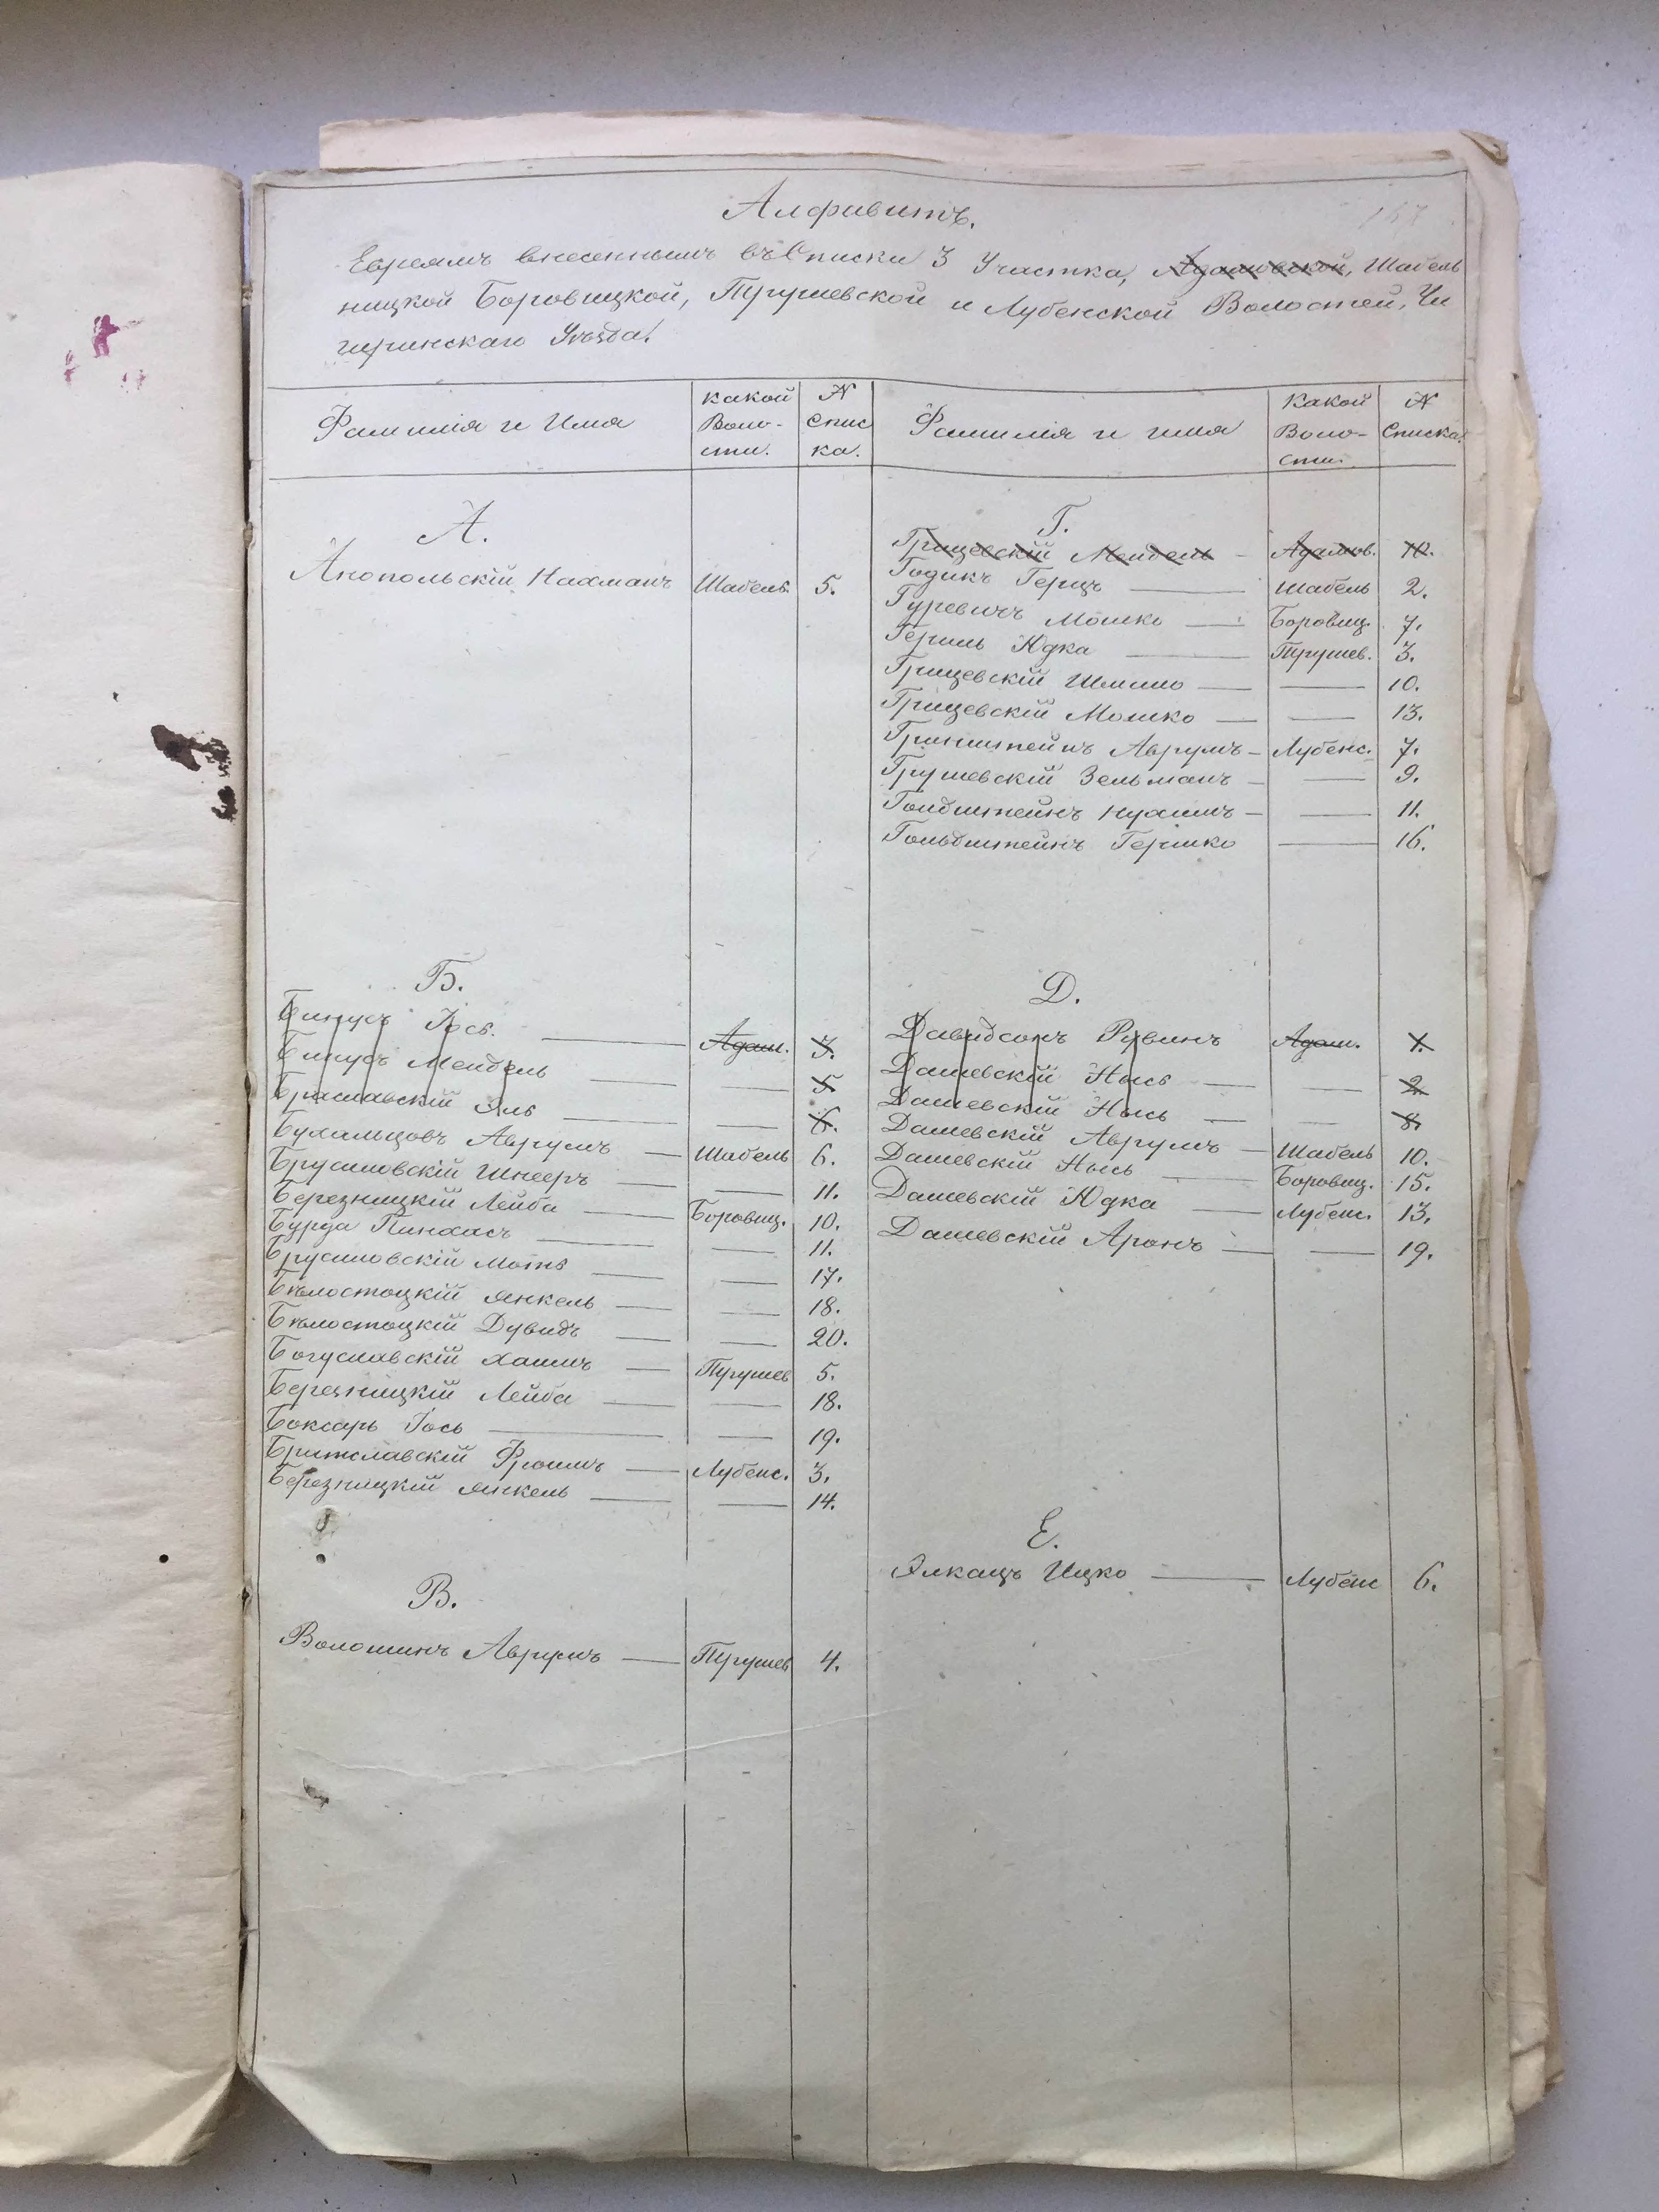 Алфавитъ.
Евреямъ внесеннымъ въ Списки 3 Участка, Адамовской, Шабель
ницкой Боровицкой, Тругиевской и Лубенской Волостей, Чи
гиринскаго Уѣзда.
Фамилія и Имя
какой Воло-
сти.
№
Спис
ка.
Фамилія и имя
Какой
Воло-
сти.
№
Списка.
А.
Анопольскій Нахманъ Шабель. 5.
Б.
Іось. Адам. 3.
Мендель 5.
6.
Бухальцовъ Аврумъ Шабель 6.
Брусиловскій Шнееръ 11.
Березницкій Лейба Боровиц. 10.
Бурда Пинхасъ 11.
Брусиловскій Мотя 17.
Бѣлостоцкій Янкель 18.
Бѣлостоцкій Дувидъ 20.
Богуславскій Хаимъ 5.
Березницкій Лейба 18.
Боксаръ Іось 19.
Братславскій Фроимъ Лубенс. 3.
Березницкій Янкель 14.
В.
Волошинъ Аврумъ 4.
Г.
Грицевскій Мендель Адамов. 10.
Годикъ Герцъ Шабель 2.
Гуревичъ Мошко Боровиц. 7.
Гершъ Юдка 3.
Грицевскій Шлиомо 10.
Грицевскій Мошко 13.
Гринштейнъ Аврумъ Лубенс. 7.
Грушевскій Зельманъ 9.
Голдштейнъ Нухимъ 11.
Гольдштейнъ Гершко 16.
Д.
Давидсонъ Рувинъ Адам. 1.
Дашевскій Нысь 2
Дашевскій Нысь 8.
Дашевскій Аврумъ Шабель 10.
Дашевскій Нысь Боровиц. 15.
Дашевскій Юдка Лубенс. 13.
Дашевскій Аронъ 19.
Е.
Элкацъ Ицко Лубенс 6.